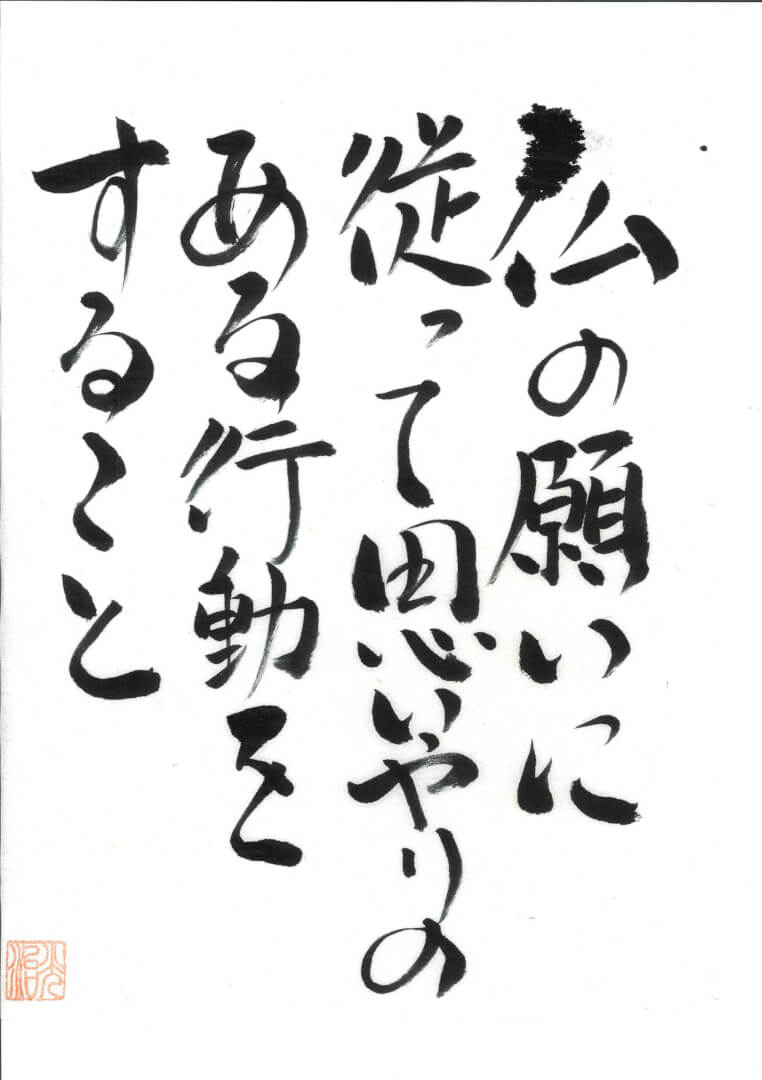 仏の願いに
従って思いやりの
ある行動を
すること